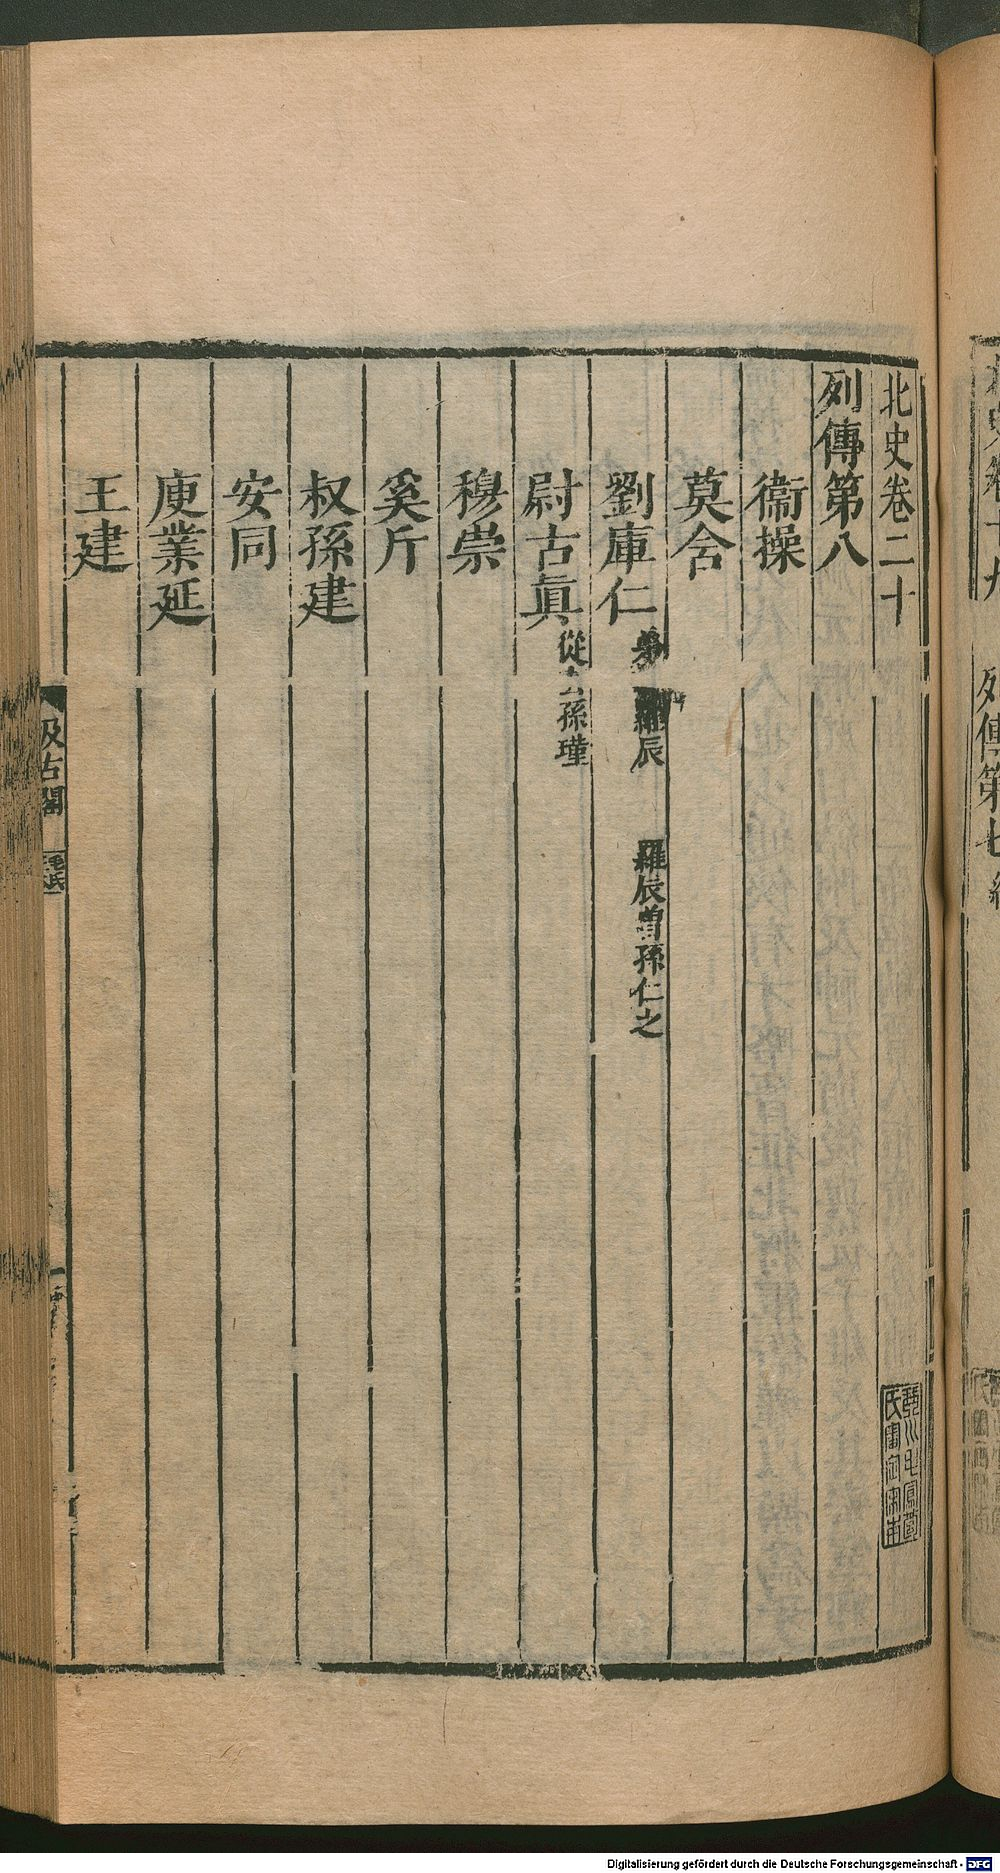 北史卷二十
列傳第八
衞操
莫含
劉庫仁 弟 羅辰 羅辰曾孫仁之
尉古眞 從 孫瑾
穆崇
奚斤
叔孫建
安同
庾業延
王建
汲古閣
毛氏
列傳第七
Digitalisierung gefördert durch die Deutsche Forschungsgemeinschaft - DFG